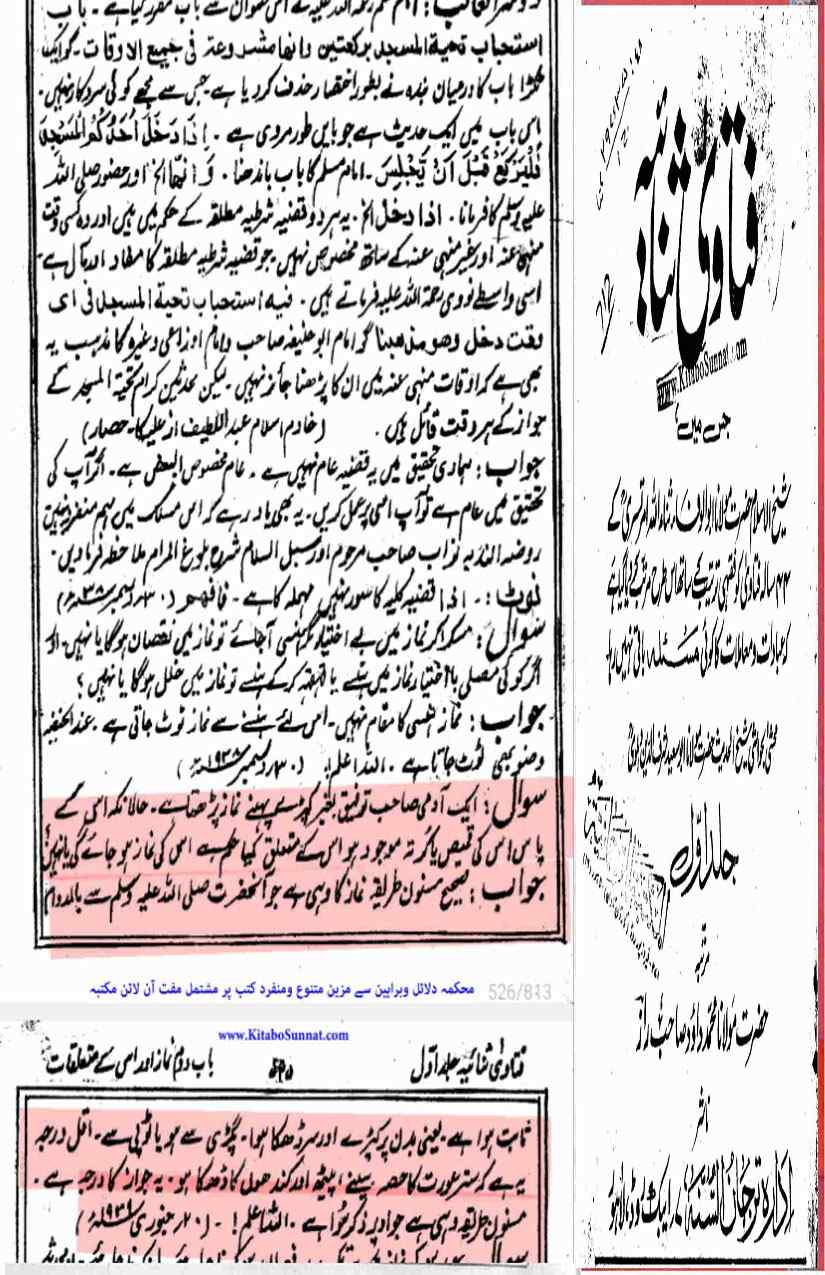 استحباب تحیة المسجد برکعتین وانها مشروعة فی جمیع الاوقات۔ گو ایک
ٹکڑا باب کا درمیان بندہ نے بطور اختصار حذف کر دیا ہے جس سے مجھے کوئی سروکار نہیں۔
اس باب میں ایک حدیث ہے جو بایں طور مروی ہے۔ اِذَا دَخَلَ اَحَدُكُمُ الْمَسْجِدَ
فَلْيَرْكَعْ قَبْلَ اَنْ يَّجْلِسَ۔ امام مسلم کا باب باندھنا۔ وَانَّهَا الخ اور حضور صلی اللہ
علیہ وسلم کا فرمانا۔ اذا دخل الخ۔ یہ ہر دو قضیہ شرطیہ مطلقہ کے حکم میں ہیں اور وہ کسی وقت
منہی عنہ اور غیر منہی عنہ کے ساتھ مخصوص نہیں۔ جو قضیہ شرطیہ مطلقہ کا مفاد اور مآل ہے۔
اسی واسطے نووی رحمۃ اللہ علیہ فرماتے ہیں۔ فیه استحباب تحیة المسجد فی ای
وقت دخل وهو مذهبنا گر امام ابو حنیفہ صاحب و امام اوزاعی وغیرہ کا مذہب یہ
بھی ہے کہ اوقات منہی عنہ میں ان کا پڑھنا جائز نہیں۔ لیکن محدثین کرام تحیۃ المسجد کے
جواز کے ہر وقت قائل ہیں۔ (خادم اسلام عبد اللطیف از علیکا۔ حصار)
جواب: ہماری تحقیق میں یہ قضیہ عام نہیں ہے۔ عام مخصوص البعض ہے۔ اگر آپ کی
تحقیق میں عام ہے تو آپ اسی پر عمل کریں۔ یہ بھی یاد رہے کہ اس مسلک میں ہم منفرد نہیں
روضہ الندیہ نواب صاحب مرحوم اور سبل السلام شرح بلوغ المرام ملاحظہ فرمادیں۔
نوٹ:۔ اذا قضیہ کلیہ کا سور نہیں مہملہ کا ہے۔ فافهم (۳۰ دسمبر ۳۸ء)
سوال: مسکرا کر نماز میں بے اختیار گر ہنسی آجائے تو نماز میں نقصان ہوگا یا نہیں۔ اور
اگر کوئی مصلی با اختیار نماز میں ہنسے یا قہقہہ کر کے ہنسے تو نماز میں خلل ہوگا یا نہیں؟
جواب: نماز ہنسی کا مقام نہیں۔ اس لئے ہنسنے سے نماز ٹوٹ جاتی ہے۔ عند الحنفیہ
وضو بھی ٹوٹ جاتا ہے۔ اللہ اعلم! (۳۰ دسمبر ۱۹۳۸ء)
سوال: ایک آدمی صاحب توفیق بغیر کپڑے پہنے نماز پڑھتا ہے۔ حالانکہ اسی کے
پاس اس کی قمیص یا کرتہ موجود ہو اس کے متعلق کیا حکم ہے اس کی نماز ہو جائے گی یا نہیں؟
جواب: صحیح مسنون طریقہ نماز کا وہی ہے جو آنحضرت صلی اللہ علیہ وسلم سے بالدوام
محکمہ دلائل وبراہین سے مزین متنوع ومنفرد کتب پر مشتمل مفت آن لائن مکتبہ
526/813
www.KitaboSunnat.com
فتاویٰ ثنائیہ جلد اول ۵۲۵ باب دوم نماز اور اس کے متعلقات
ثابت ہوا ہے۔ یعنی بدن پر کپڑے اور سر ڈھکا ہوا۔ پگڑی سے ہو یا ٹوپی سے۔ اقل درجہ
یہ ہے کہ ستر عورت کا حصہ سینے، پیٹھ اور کندھوں کا ڈھکا ہو۔ یہ جواز کا درجہ ہے۔
مسنون طریقہ وہی ہے جو اوپر ذکر ہوا ہے۔ اللہ اعلم! ۔ (۲۰ جنوری ۱۹۳۹ء)
فتاویٰ ثنائیہ
www.KitaboSunnat.com
جس میں
شیخ الاسلام حضرت مولانا ابوالوفاء ثناء اللہ امرتسریؒ کے
۴۴ سالہ فتاویٰ کو فقہی ترتیب کے ساتھ اس طرح مرتب کیا گیا ہے
کہ عبادات و معاملات کا کوئی مسئلہ باقی نہیں رہا
محشی بحواشی شیخ الحدیث حضرت مولانا ابو سعید شرف الدین دہلویؒ
جلد اول
مرتبہ
حضرت مولانا محمد داؤد صاحب راز
ناشر
ادارہ ترجمان السنۃ، ۷ ایبک روڈ، لاہور